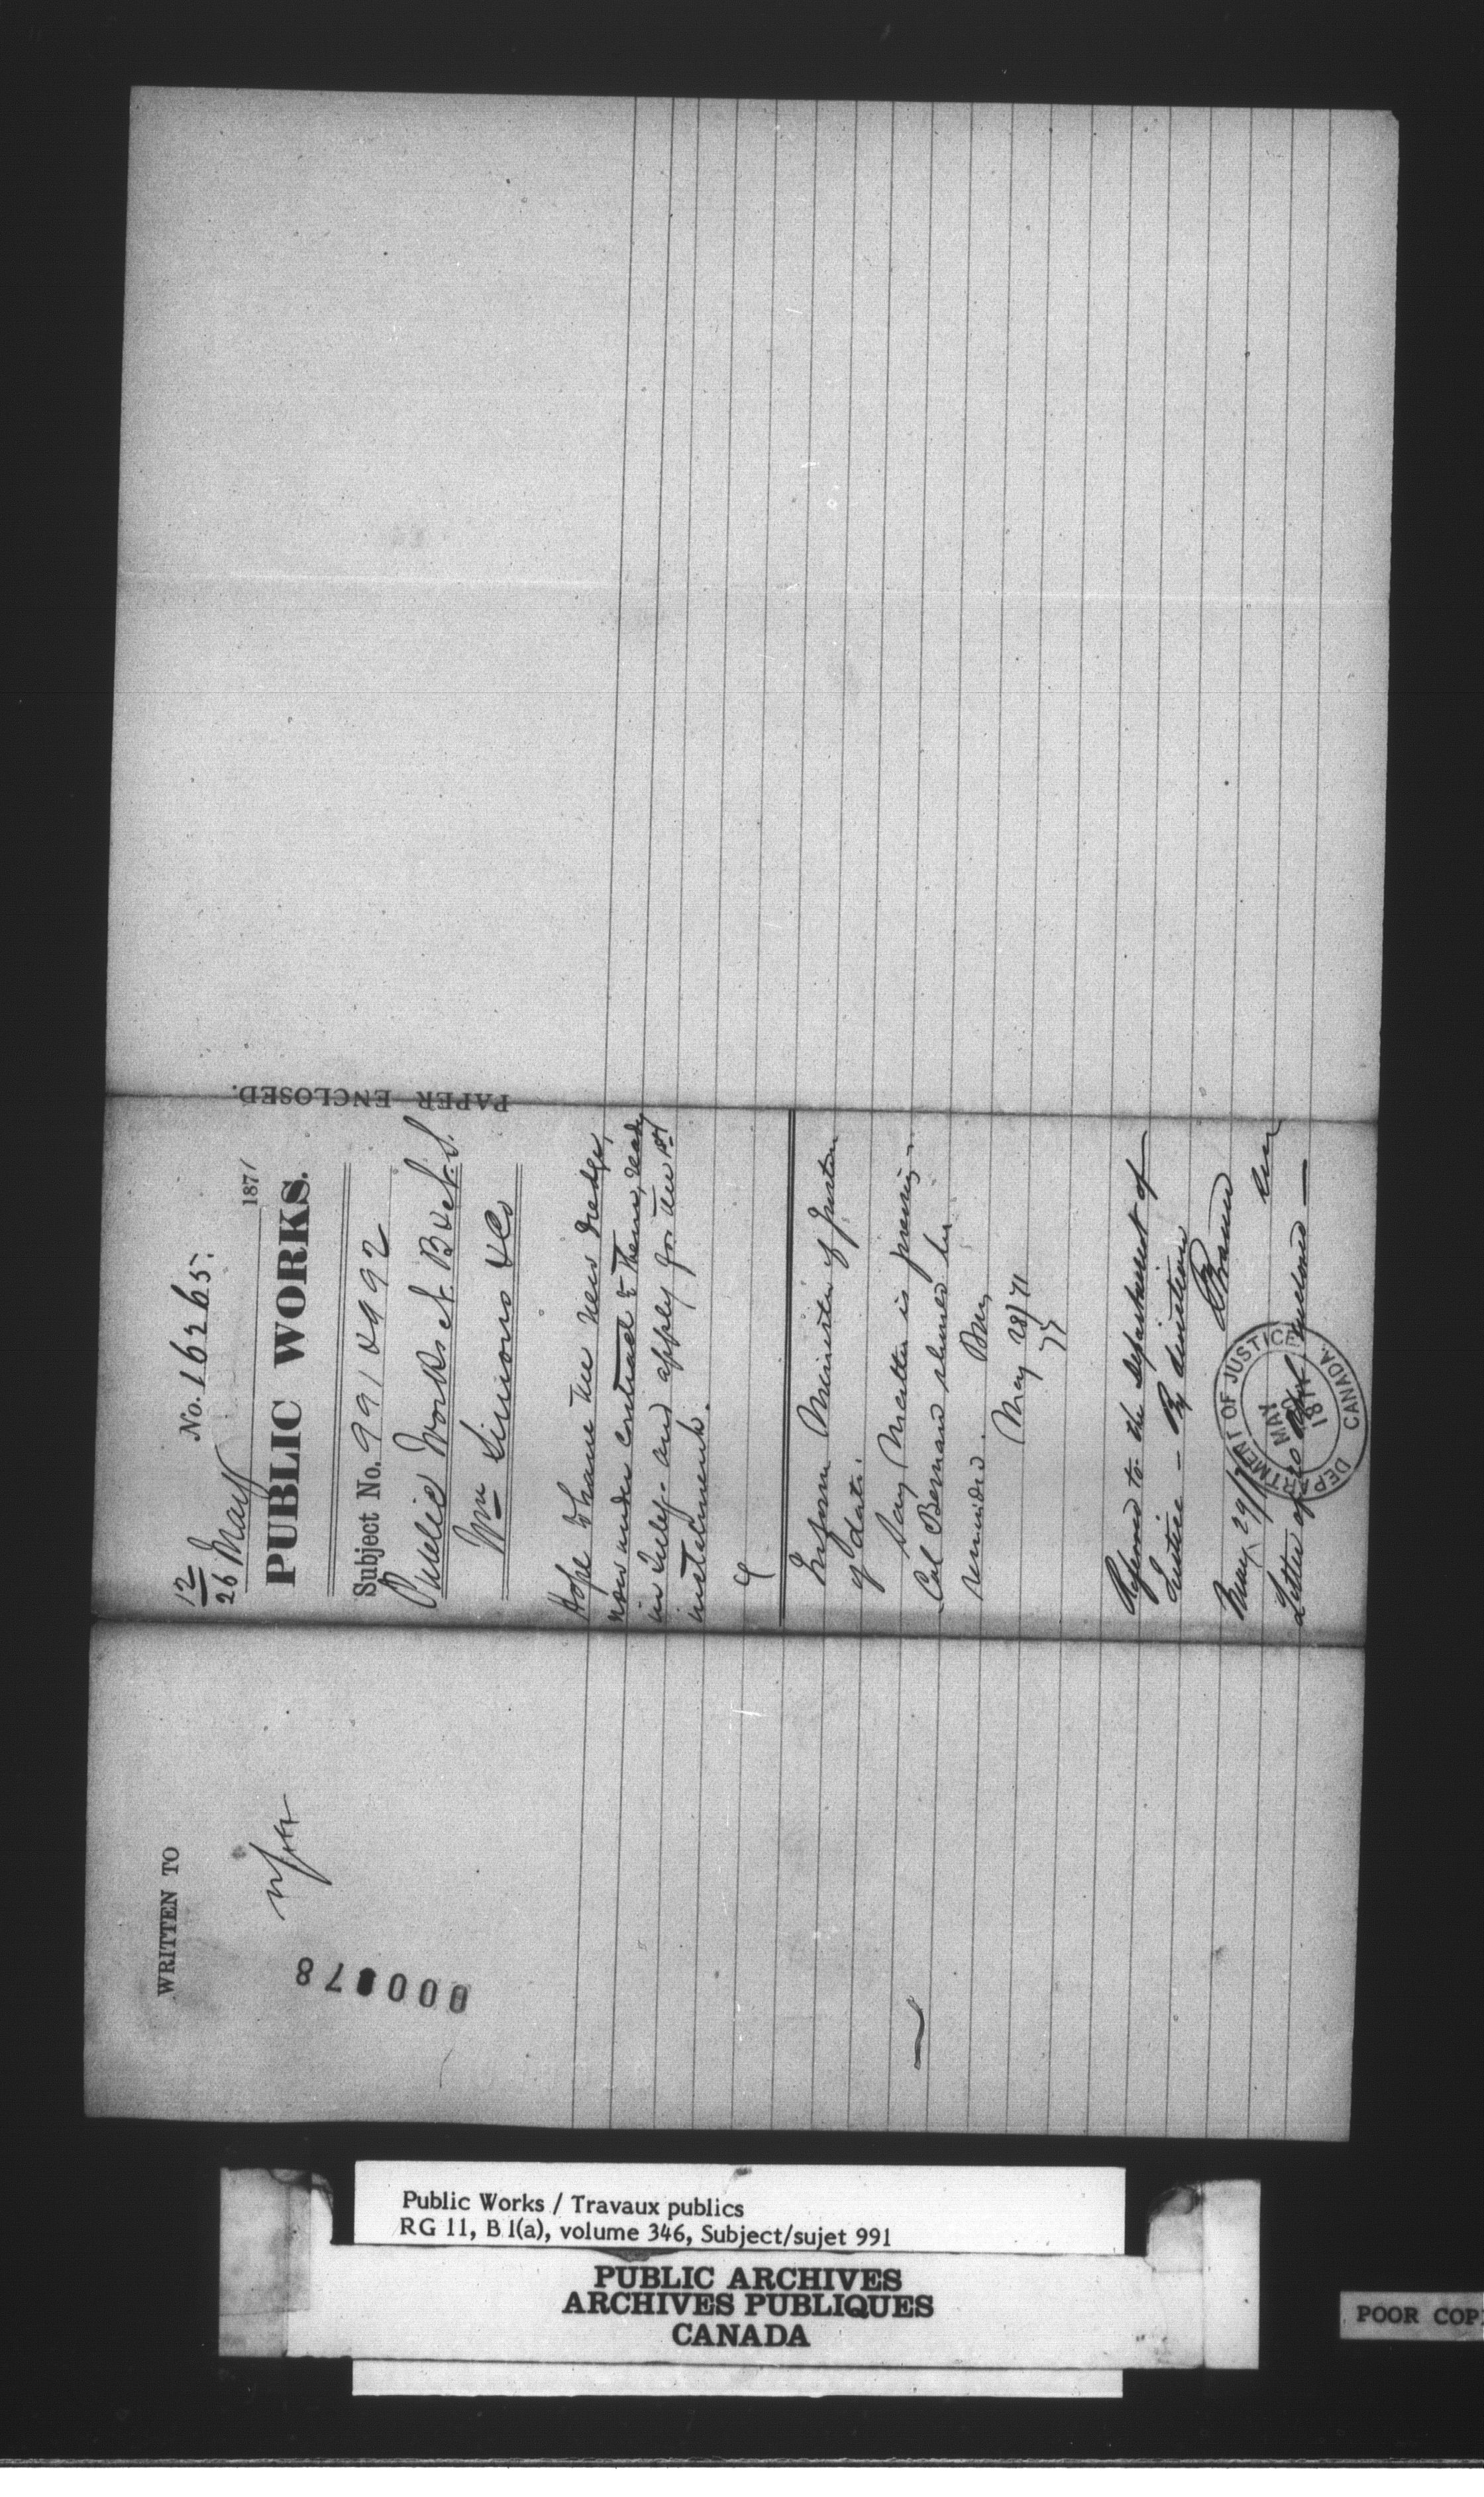 12
No. 16265.
26 May 1871
PUBLIC WORKS.
Subject No. 991 & 992
Public Works N. B & N. S.
Wm Simons & Co
Hope to have the new dredge,
now under contract to them, ready
in July. and apply for the 1st
instalment.
Inform Minister of Justice
of date.
Say Matter is pressing
Col Bernard should be
reminded.
May 28/71
Referred to the department of
Justice — By direction
Braun
May 29/71
Letter of 20 April enclosed —
DEPARTMENT OF JUSTICE
MAY
1871
CANADA.
PAPER ENCLOSED.
WRITTEN TO
Public Works / Travaux publics
RG 11, B 1(a), volume 346, Subject/sujet 991
PUBLIC ARCHIVES
ARCHIVES PUBLIQUES
CANADA
POOR COP